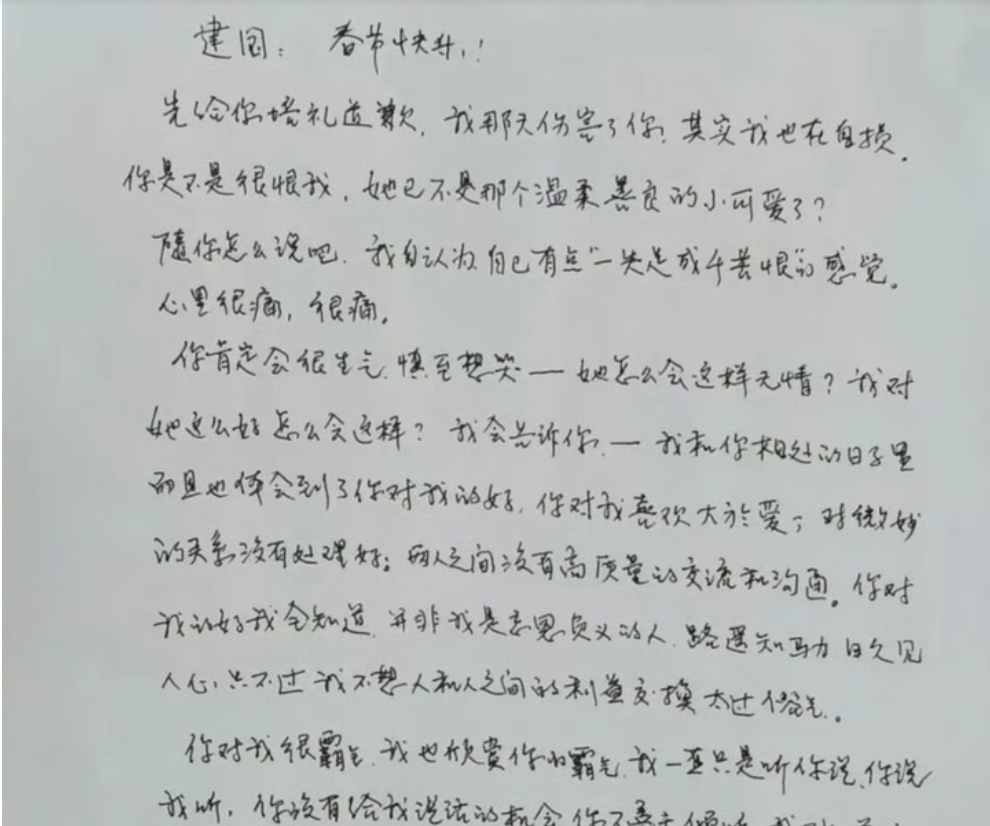 建国：春节快乐！
先给你培礼道歉，我那天伤害了你，其实我也在自损。
你是不是很恨我，她已不是那个温柔善良的小可爱了？
随你怎么说吧，我自认为自己有点“一失足成千苦恨”的感觉。
心里很痛，很痛。
你肯定会很生气，慎至想哭——她怎么会这样无情？我对
她这么好怎么会这样？我会告诉你，——我和你相处的日子里
而且也体会到了你对我的好，你对我喜欢大於爱，对微妙
的关系没有处理好；两人之间没有高质量的交流和沟通。你对
我的好我全知道，并非我是忘恩负义的人，路遥知马力日久见
人心，只不过我不想人和人之间的利益交换太过俗气。
你对我很霸气，我也欣赏你的霸气，我一直只是听你说，你说
我听，你没有给我说话的机会，你不善于倾听，我